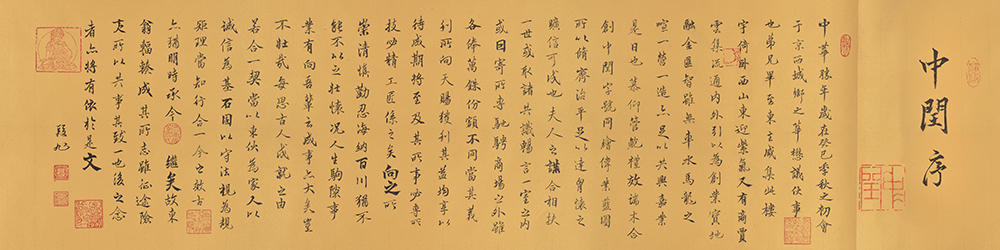 中閏序
中華臻年歲在癸巳季秋之初會
于京西城鄉之華懋議伙事
也弟兄畢至東主咸集此樓
宇倚卧西山東迎紫氣又有商賈
雲集流通內外引以為創業寶地
融金匯智雖無車水馬龍之
喧一營一造亦足以共興嘉業
是日也慕仰管範權效端木合
創中閏字號同繪偉業藍圖
所以脩齊治平足以達胸懷之
曠信可成也夫人之謀合相扶
一世或取諸共識暢言一室之內
或因寄所專馳騁商場之外雖
各俸萬銖份額不同當其義
利所向天賜獲利其益均享以
待咸期將至及其所事必專所
技必精工匠係之矣向之所
崇清慎勤忍海納百川猶不
能不以之壯懷况人生駒隙事
業有向吾輩云成事亦大矣豈
不壯哉每思古人成就之由
若合一契當以東伙為家人以
誠信為基石固以守法規為規
矩理當知行合一今之效古
亦猶明時承今繼矣故東
翁輻輳成其所志雖征途險
所以共事其致一也後之念
者亦將有依於是文